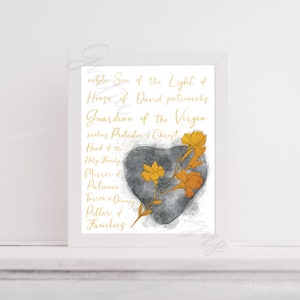 noble Son of the Light of
House of David patriarchs
Guardian of the Virgin
zealous Protector of Christ
Head of the
Holy Family
Mirror of
Patience
Terror of Demons
Pillar of
Families